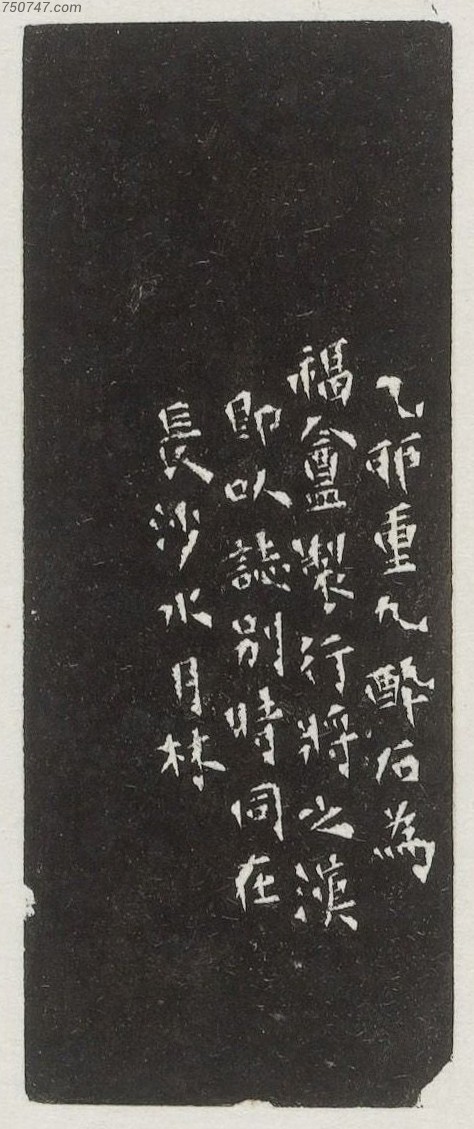 750747.com
乙卯重九醉后為
福盦製行將之滇
即以誌別時同在
長沙水月林